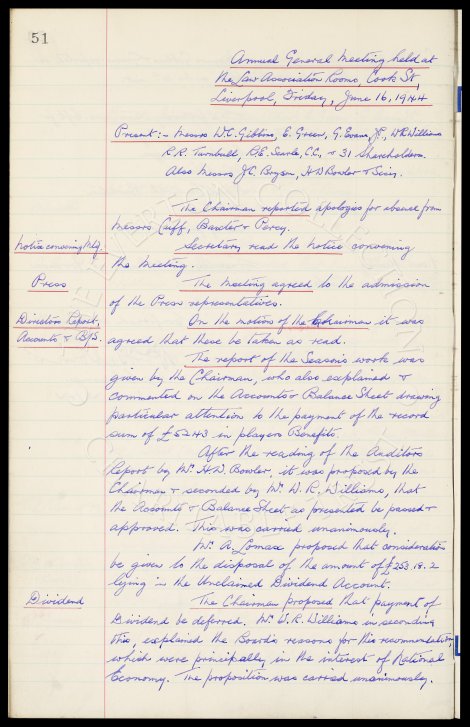 51
Annual General Meeting held at
the Law Association Rooms, Cook St,
Liverpool, Friday, June 16, 1944
Present:- Messrs W.C. Gibbins, E. Green, G. Evans, J.P., W.R. Williams
R.R. Turnbull, R.E. Searle, C.C., & 31 Shareholders.
Also Messrs J.C. Bryson, H.D. Bowler &
The Chairman reported apologies for absence from
Messrs Cuff, Baxter & Percy.
Notice convening Mtg. Secretary read the notice convening
the Meeting.
Press The Meeting agreed to the admission
of the Press representatives.
Directors Report, On the motion of the Chairman it was
Accounts & B/S. agreed that these be taken as read.
The report of the Seasons work was
given by the Chairman, who also explained &
commented on the Accounts & Balance Sheet drawing
particular attention to the payment of the record
sum of £5243 in players Benefits.
After the reading of the Auditors
Report by Mr. H.D. Bowler, it was proposed by the
Chairman & seconded by Mr. W.R. Williams, that
the Accounts & Balance Sheet as presented be passed &
approved. This was carried unanimously.
Mr. A. Lomax proposed that consideration
be given to the disposal of the amount of £253.18.2
lying in the Unclaimed Dividend Account.
Dividend The Chairman proposed that payment of
Dividend be deferred. Mr. W.R. Williams in seconding
this, explained the Boards reasons for this recommendation,
which were principally, in the interest of National
Economy. The proposition was carried unanimously.